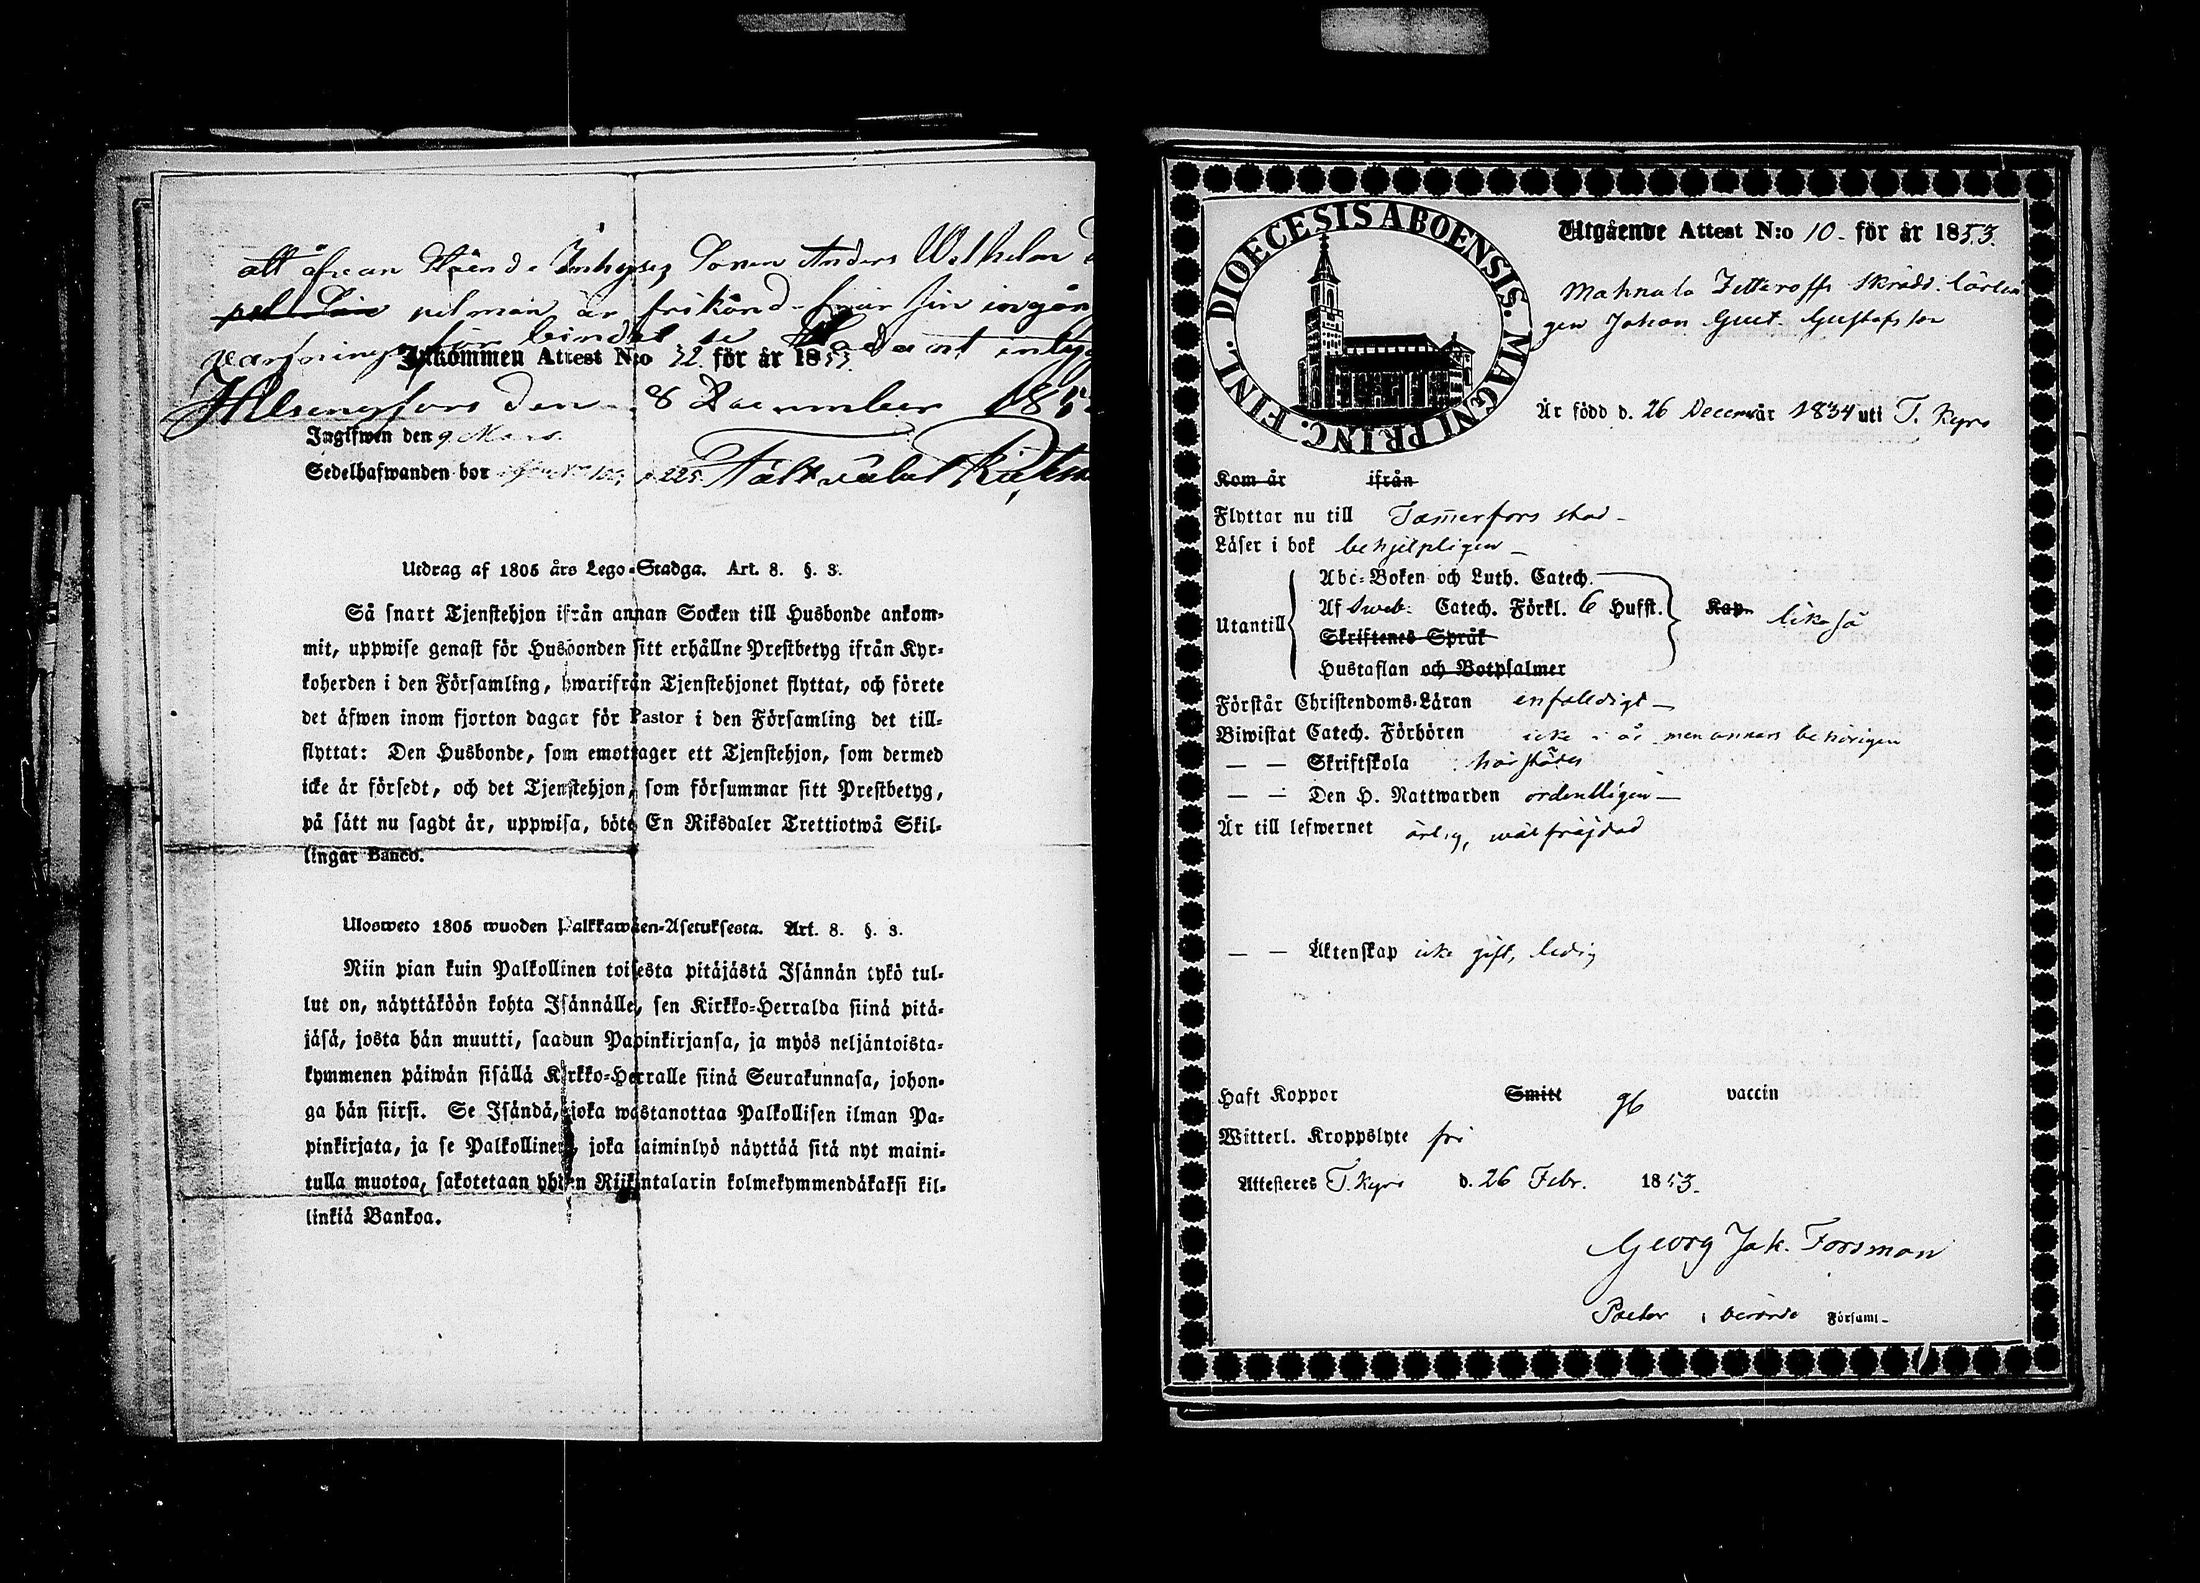 att åfvan Stående Inhyses Sonen Anders Wilhelm
pelman är frikänd från sin ingån
värfnings för bindel
Inkommen Attest N:o 32. för år 1853.
Helsingfors den 8 December 185
Ingifwen den 9 Mars.
Sedelhafwanden bor
Utdrag af 1805 års Lego-Stadga. Art. 8. §. 3.
Så snart Tjenstehjon ifrån annan Socken till Husbonde ankom-
mit, uppwise genast för Husbonden sitt erhållne Prestbetyg ifrån Kyr-
koherden i den Församling, hwarifrån Tjenstehjonet flyttat, och förete
det äfwen inom fjorton dagar för Pastor i den Församling det till-
flyttat: Den Husbonde, som emottager ett Tjenstehjon, som dermed
icke är försedt, och det Tjenstehjon, som försummar sitt Prestbetyg,
på sätt nu sagdt är, uppwisa, böte En Riksdaler Trettiotwå Skil-
lingar Banco.
Ulosweto 1805 wuoden Palkkawäen-Asetuksesta. Art. 8. §. 3.
Niin pian kuin Palkollinen toisesta pitäjästä Isännän tykö tul-
lut on, näyttäköön kohta Isännälle, sen Kirkko-Herralda siinä pitä-
jäsä, josta hän muutti, saadun Papinkirjansa, ja myös neljäntoista-
kymmenen päiwän sisällä Kirkko-Herralle siinä Seurakunnasa, johon-
ga hän siirsi. Se Isändä, joka wastanottaa Palkollisen ilman Pa-
pinkirjata, ja se Palkollinen, joka laiminlyö näyttää sitä nyt maini-
tulla muotoa, sakotetaan yhden Riikintalarin kolmekymmendäkaksi kil-
linkiä Bankoa.
DIOECESIS ABOENSIS. MAGNI PRINC. FINL.
Utgående Attest N:o 10. för år 1853.
Mahnala Zetteroffs Skrädd. lärlin
gen Johan Gust. Gustafsson
Är född d. 26 Decem år 1834 uti T. Kyro
Kom år ifrån
Flyttar nu till Tammerfors stad
Läser i bok behjelpligen
Utantill
Abc-Boken och Luth. Catech.
Af Sweb. Catech. Förkl. 6 Hufst. Kap. likaså
Skriftenes Språk
Hustaflan och Botpsalmer
Förstår Christendoms-Läran enfaldigt
Biwistat Catech. Förhören icke i år men annars behörigen
— — Skriftskola härstädes
— — Den H. Nattwarden ordentligen
Är till lefwernet ärlig, wälfräjdad
— — Äktenskap icke gift, ledig
Haft Koppor Smitt vaccin
Witterl. Kroppslyte fri
Attesteres T. Kyro d. 26 Febr. 1853.
Georg Jak. Forsman
Pastor i berörde Församl.